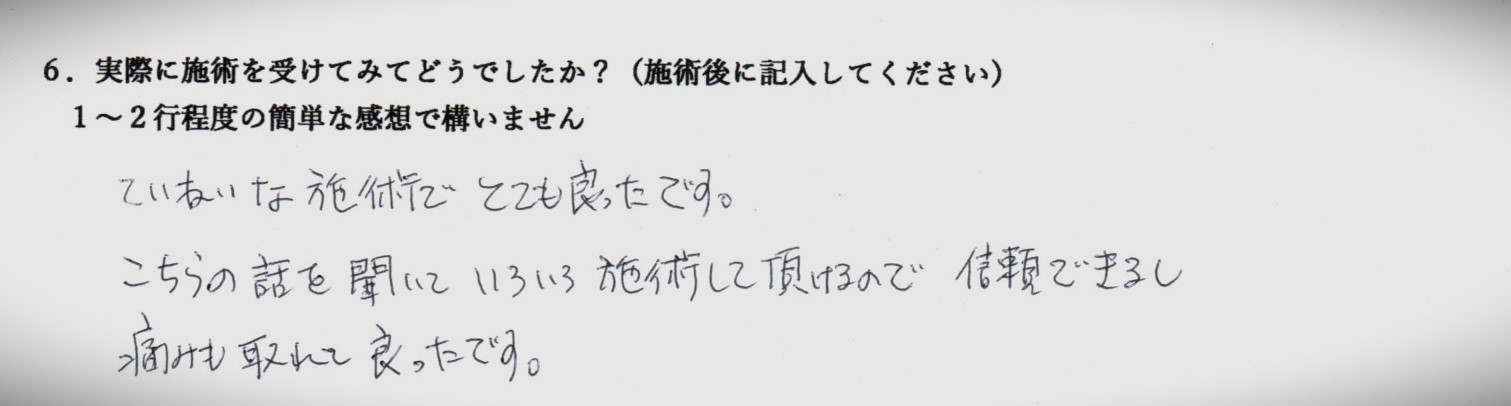 6．実際に施術を受けてみてどうでしたか？（施術後に記入してください）
1～2行程度の簡単な感想で構いません
ていねいな施術でとても良ったです。
こちらの話を聞いていろいろ施術して頂けるので信頼できるし
痛みも取れて良ったです。